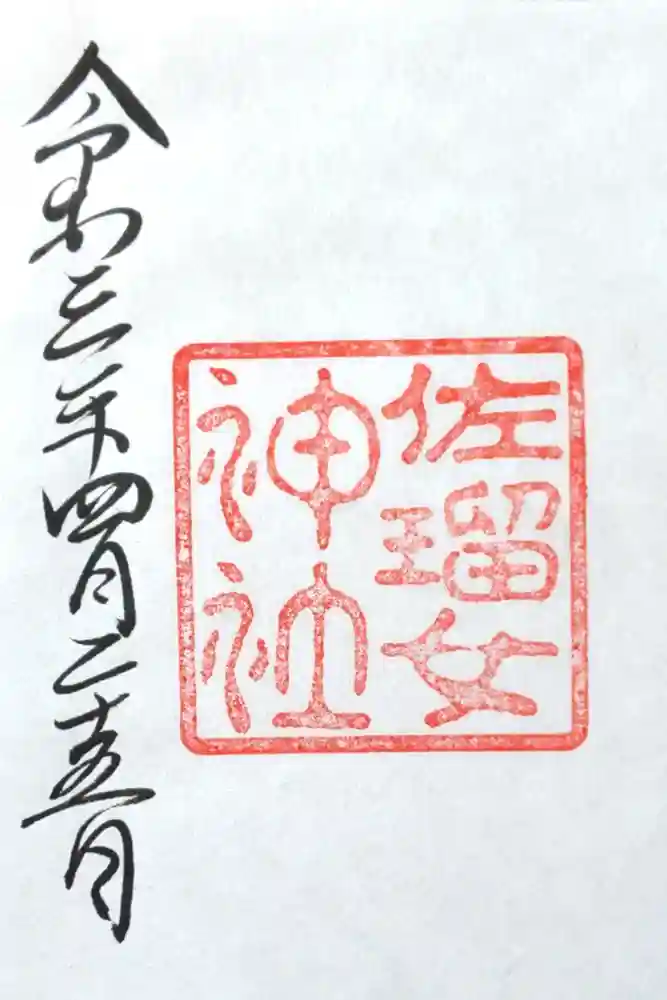 佐瑠女
神社
令和三年四月二十五日